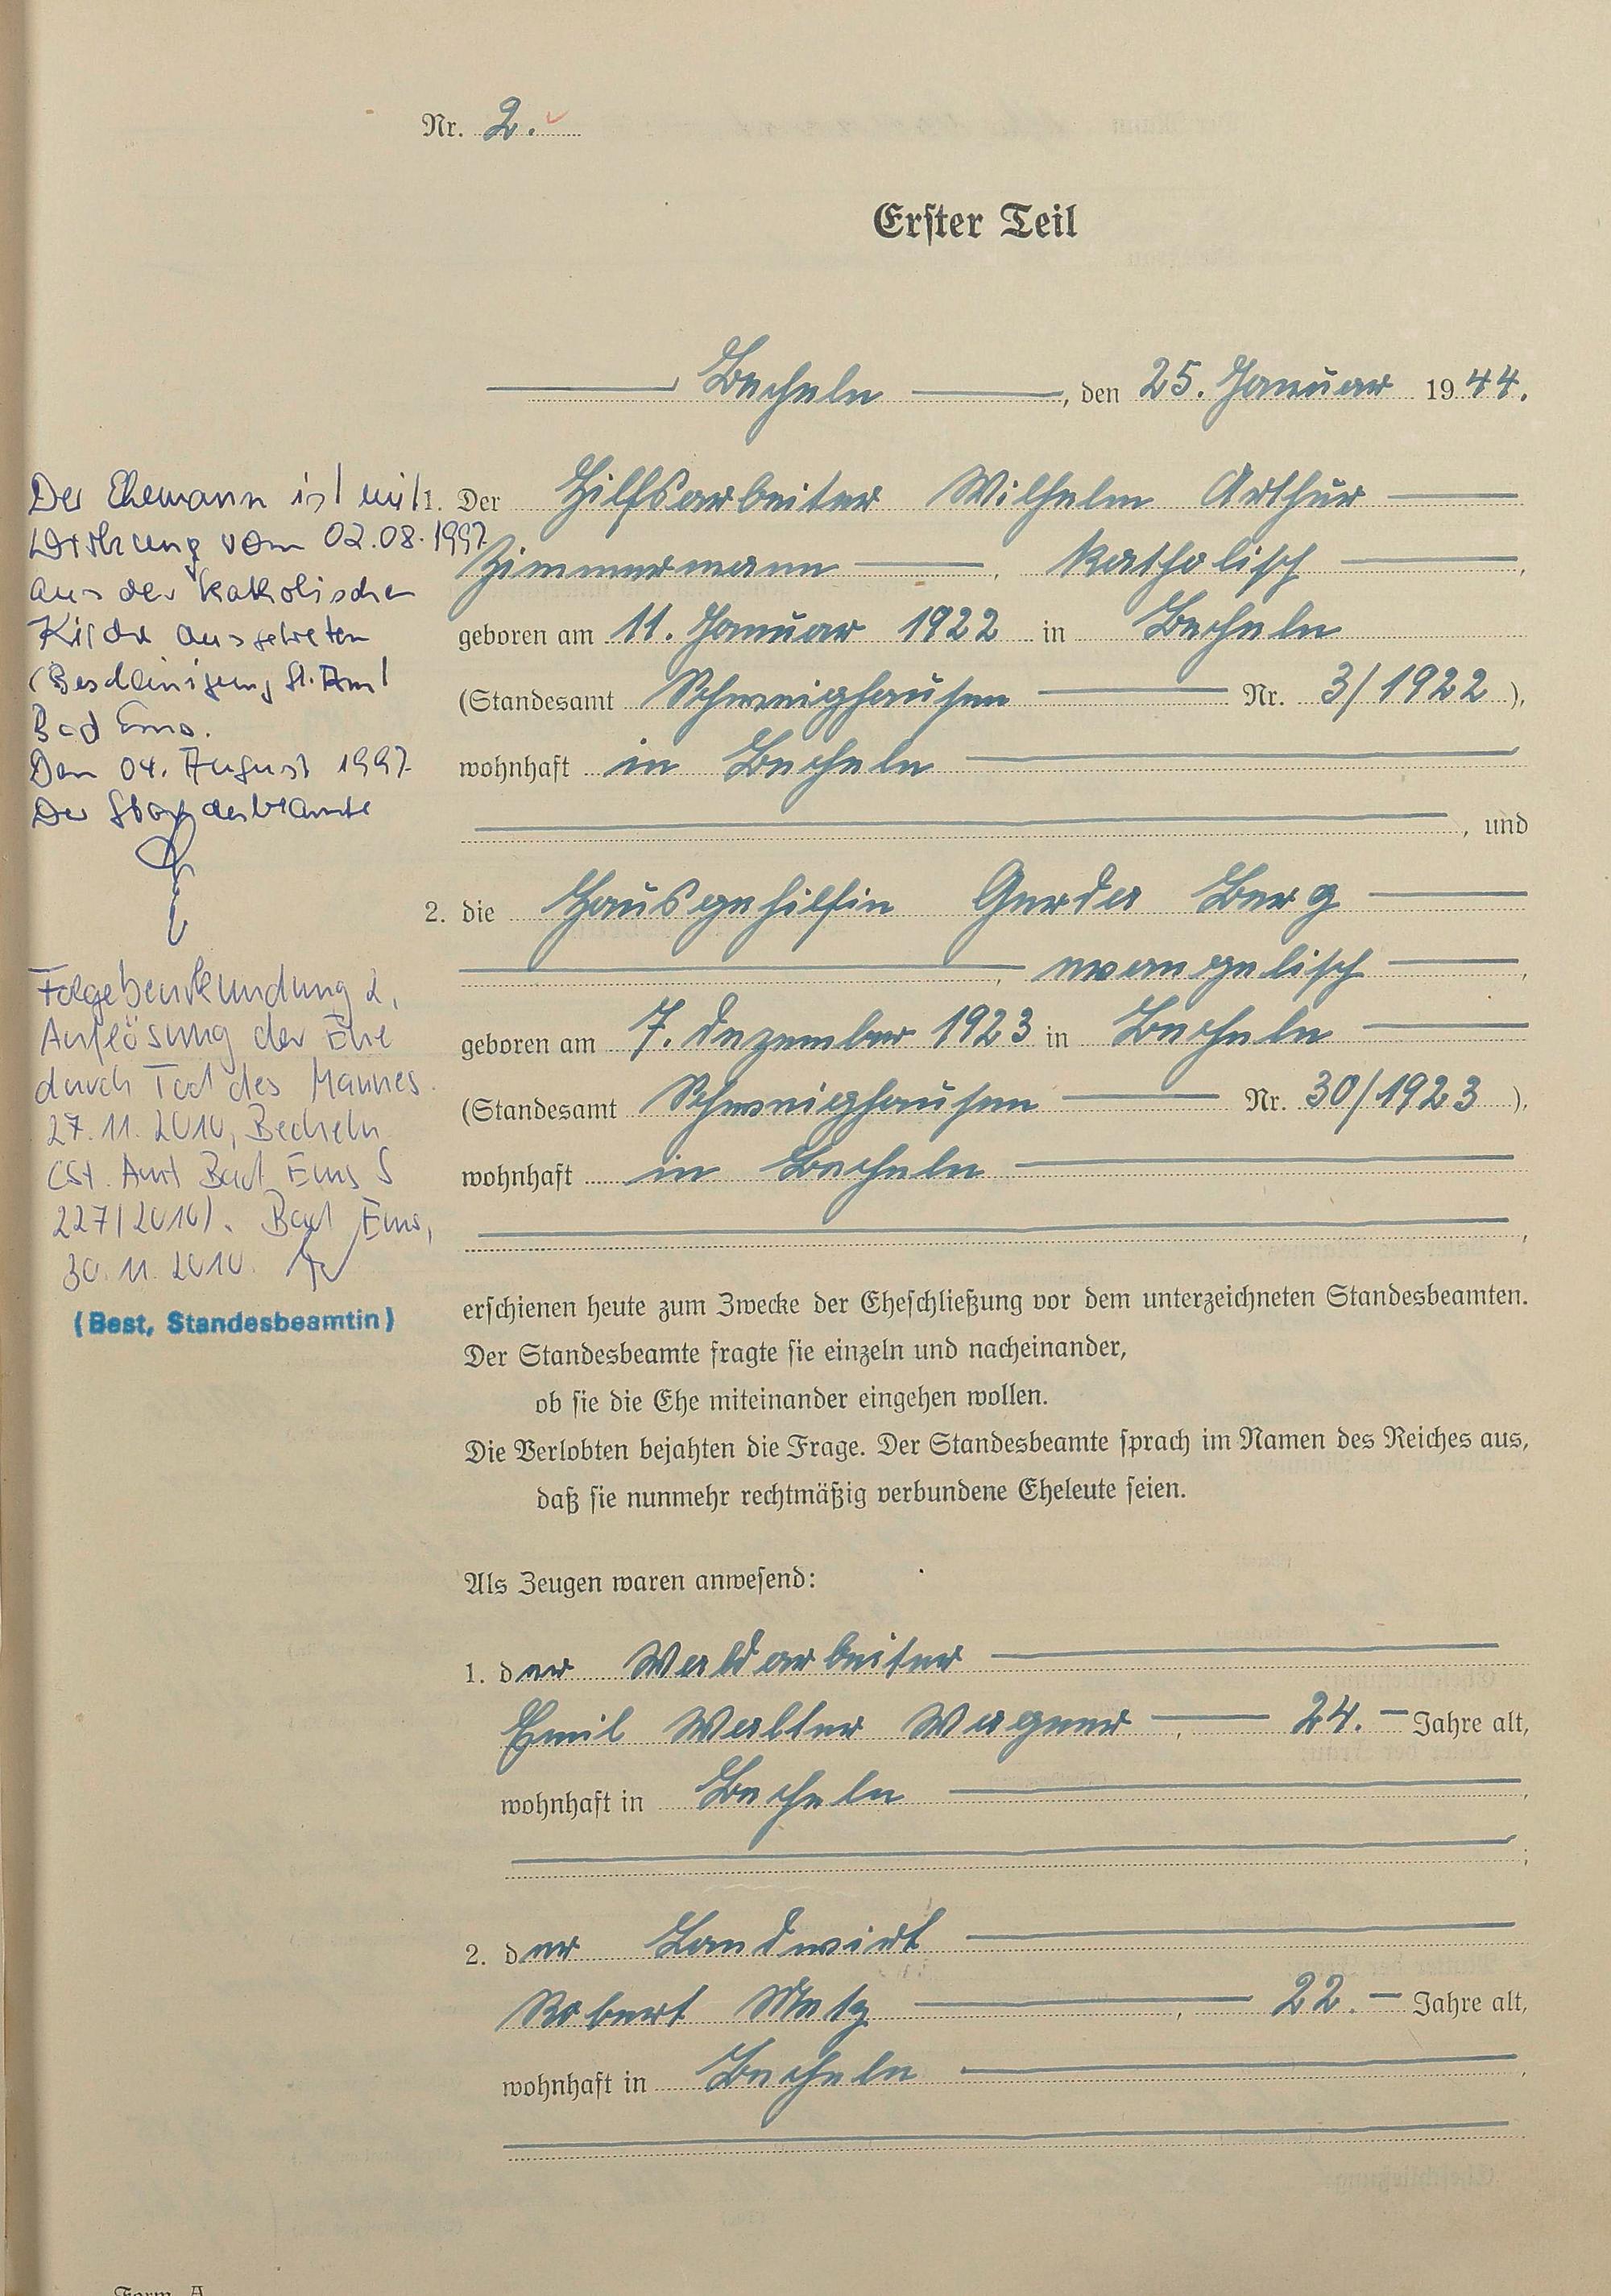 Nr. 2.
Erster Teil
Becheln, den 25. Januar 1944.
1. Der Hilfsarbeiter Wilhelm Arthur
Zimmermann, katholisch,
geboren am 11. Januar 1922 in Becheln
(Standesamt Schweighausen Nr. 3/1922),
wohnhaft in Becheln
, und
2. die Hausgehilfin Gerda Berg
, evangelisch,
geboren am 7. Dezember 1923 in Becheln
(Standesamt Schweighausen Nr. 30/1923),
wohnhaft in Becheln
,
erschienen heute zum Zwecke der Eheschließung vor dem unterzeichneten Standesbeamten.
Der Standesbeamte fragte sie einzeln und nacheinander,
ob sie die Ehe miteinander eingehen wollen.
Die Verlobten bejahten die Frage. Der Standesbeamte sprach im Namen des Reiches aus,
daß sie nunmehr rechtmäßig verbundene Eheleute seien.
Als Zeugen waren anwesend:
1. der Waldarbeiter
Emil Walter Wagner, 24. Jahre alt,
wohnhaft in Becheln,
;
2. der Landwirt
Robert Metz, 22. Jahre alt,
wohnhaft in Becheln,
Der Ehemann ist mit
Wirkung vom 02.08.1997
aus der katholischen
Kirche ausgetreten
(Bescheinigung St. Amt
Bad Ems.
Den 04. August 1997
Der Standesbeamte
Folgebeurkundung 2,
Auflösung der Ehe
durch Tod des Mannes
27.11.2010, Becheln
(St. Amt Bad Ems S
227/2010). Bad Ems,
30.11.2010.
(Best, Standesbeamtin)
Form. A